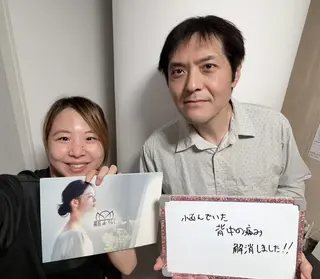 悩んでいた
背中の痛み
解消しました!!